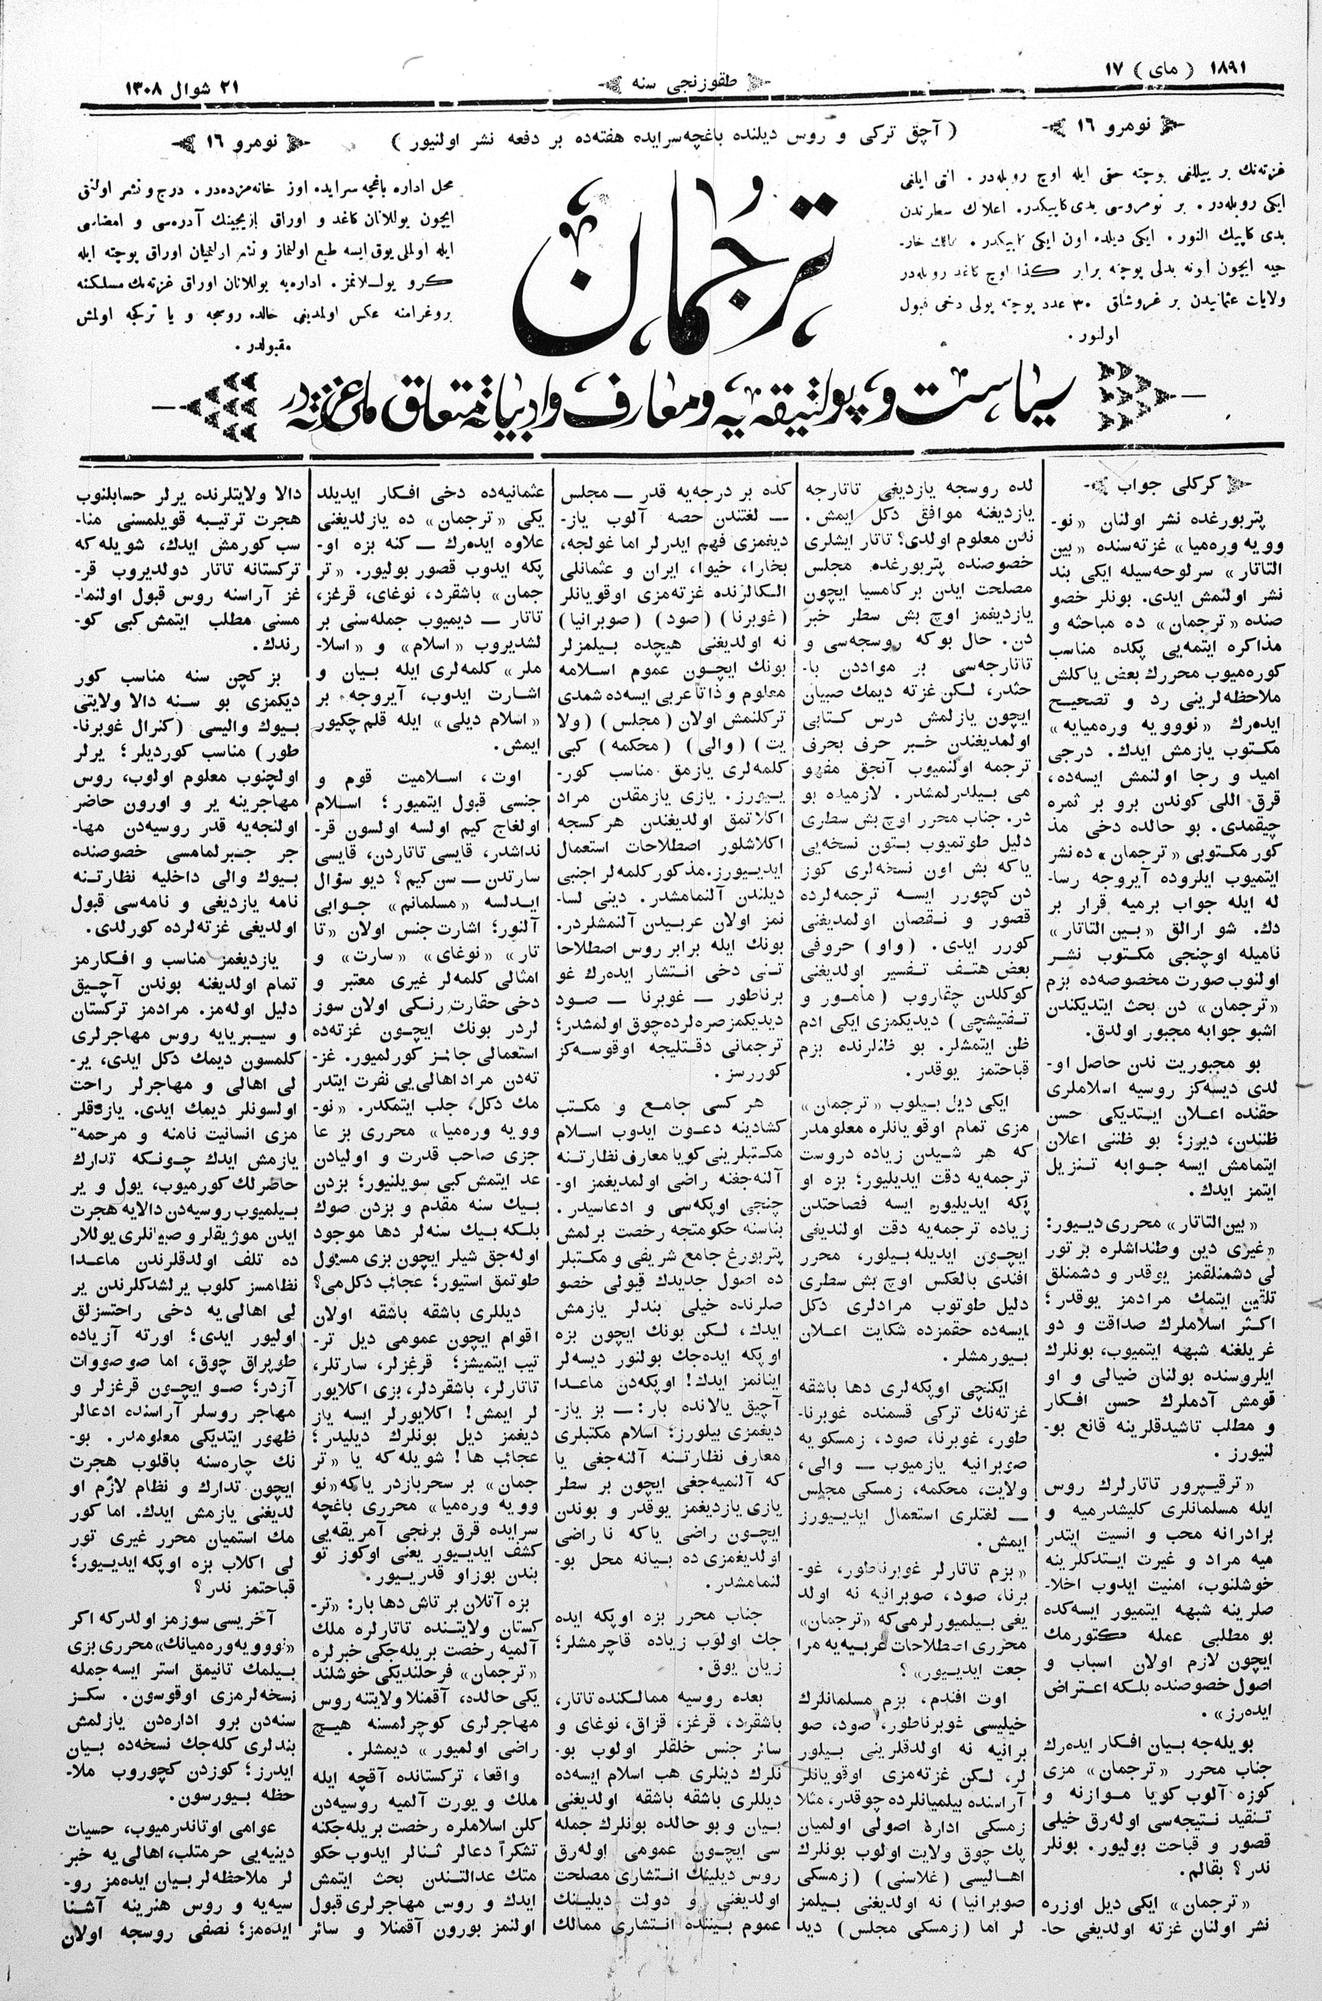 ١٨٩١ ( مای ) ١٧
طقوزنجی سنه
٢١ شوال ١٣٠٨
نومرو ١٦
( آچق ترکی و روس دیلنده باغچه‌سرایده هفته‌ده بر دفعه نشر اولنیور )
نومرو ١٦
غزته‌نك بر ییللغی پوچته حقی ایله اوچ روبله‌در . التی ایلغی
ایکی روبله‌در . بر نومروسی یدی کاپیکدر. اعلانك سطرندن
یدی کاپیك النور. ایکی دیلده اون ایکی کاپیکدر.
جیه ایچون اونه بدلی پوچته برابر کذا اوچ کاغد روبله‌در
ولایات عثمانیدن بر غروشلق ٣٠ عدد پوچته پولی دخی قبول
اولنور .
ترجمان
محل اداره باغچه سرایده اوز خانه‌مزده‌در . درج و نشر اولنق
ایچون یوللانان کاغد و اوراق یازیجینك آدره‌سی و امضاسی
ایله اولملی یوق ایسه طبع اولنماز و نشر اولنمیان اوراق پوچته ایله
کرو یوللانمز. اداره‌یه یوللانان اوراق غزته‌نك مسلکنه
پروغرامنه عکس اولمدیغی حالده روسجه و یا ترکجه اولمش
مقبولدر .
سیاست و پولتیقه‌یه و معارف و ادبیاته متعلق ملی غزته‌در
کرکلی جواب
پتربورغده نشر اولنان «نو-
وویه وره‌میا» غزته‌سنده «بین
التاتار» سرلوحه‌سیله ایکی بند
نشر اولنمش ایدی. بونلر خصو
صنده «ترجمان» ده مباحثه و
مذاکره ایتمه‌یی پکده مناسب
کوره‌میوب محررك بعض یاکلش
ملاحظه‌لرینی رد و تصحیح
ایده‌رك «نووویه وره‌میایه»
مکتوب یازمش ایدك. درجی
امید و رجا اولنمش ایسه‌ده،
قرق اللی کوندن برو بر ثمره
چیقمدی. بو حالده دخی مذ
کور مکتوبی «ترجمان» ده نشر
ایتمیوب ایلروده آیروجه رسا-
له ایله جواب برمیه قرار بر
دك. شو ارالق «بین‌التاتار»
نامیله اوچنجی مکتوب نشر
اولنوب صورت مخصوصه‌ده بزم
«ترجمان» دن بحث ایتدیکندن
اشبو جوابه مجبور اولدق.
بو مجبوریت ندن حاصل او-
لدی دیسه‌کز روسیه اسلاملری
حقنده اعلان ایتدیکی حسن
ظنندن، دیرز؛ بو ظننی اعلان
ایتمامش ایسه جوابه تنزیل
ایتمز ایدك .
«بین‌التاتار» محرری دییور:
«غیری دین وطنداشلره بر تور
لی دشمنلقمز یوقدر و دشمنلق
تلقین ایتمك مرادمز یوقدر؛
اکثر اسلاملرك صداقت و دو
غریلغنه شبهه ایتمیوب، بونلرك
ایلروسنده بولنان ضیالی و او
قومش آدملرك حسن افکار
و مطلب تاشیدقلرینه قانع بو-
لنیورز .
« ترقیپرور تاتارلرك روس
ایله مسلمانلری کلیشدرمیه و
برادرانه محب و انسیت ایتدر
میه مراد و غیرت ایتدکلرینه
خوشلنوب، امنیت ایدوب اخلا-
صلرینه شبهه ایتمیور ایسه‌کده
بو مطلبی عمله کتورمك
ایچون لازم اولان اسباب و
اصول خصوصنده بلکه اعتراض
ایده‌رز» .
بویله‌جه بیان افکار ایده‌رك
جناب محرر «ترجمان» مزی
کوزه آلوب کویا موازنه و
تنقید نتیجه‌سی اوله‌رق خیلی
قصور و قباحت بولیور. بونلر
ندر؟ بقالم.
«ترجمان» ایکی دیل اوزره
نشر اولنان غزته اولدیغی حا-
لده روسجه یازدیغی تاتارجه
یازدیغنه موافق دکل ایمش.
ندن معلوم اولدی؟ تاتار ایشلری
خصوصنده پتربورغده مجلس
مصلحت ایدن بر کامسیا ایچون
یازدیغمز اوچ بش سطر خبر
دن. حال بوکه روسجه‌سی و
تاتارجه‌سی بر مواددن با-
حثدر، لکن غزته دیمك صبیان
ایچون یازلمش درس کتابی
اولمدیغندن خبر حرف بحرف
ترجمه اولنمیوب آنجق مفهو
می بیلدرلمشدر. لازمیده بو
در. جناب محرر اوچ بش سطری
دلیل طوتمیوب بتون نسخه‌یی
یاکه بش اون نسخه‌لری کوز
دن کچورر ایسه ترجمه‌لرده
قصور و نقصان اولمدیغنی
کورر ایدی. (واو) حروفی
بعض هتف تفسیر اولدیغنی
کوکلدن چقاروب (مأمور و
تفتیشچی) دیدیکمزی ایکی ادم
ظن ایتمشلر. بو ظنلرنده بزم
قباحتمز یوقدر.
ایکی دیل بیلوب «ترجمان»
مزی تمام اوقویانلره معلومدر
که هر شیدن زیاده دروست
ترجمه‌یه دقت ایدیلیور؛ بزه او
پکه ایدیلیور ایسه فصاحتدن
زیاده ترجمه‌یه دقت اولندیغی
ایچون ایدیله بیلور، محرر
افندی بالعکس اوچ بش سطری
دلیل طوتوب مرادلری دکل
ایسه‌ده حقمزده شکایت اعلان
بیورمشلر.
ایکنچی اوپکه‌لری دها باشقه
غزته‌نك ترکی قسمنده غوبرنا-
طور، غوبرنا، صود، زمسکویه
صوبرانیه یازمیوب — والی،
ولایت، محکمه، زمسکی مجلس
— لغتلری استعمال ایدییورز
ایمش.
«بزم تاتارلر غوبرناطور، غو-
برنا، صود، صوبرانیه نه اولد
یغی بیلمیورلرمی‌که «ترجمان»
محرری اصطلاحات عربیه‌یه مرا
جعت ایدییور»؟
اوت افندم، بزم مسلمانلرك
خیلیسی غوبرناطور، صود، صو
برانیه نه اولدقلرینی بیلور
لر، لکن غزته‌مزی اوقویانلر
آراسنده بیلمیانلرده چوقدر، مثلا
زمسکی ادارهٔ اصولی اولمیان
پك چوق ولایت اولوب بونلرك
اهالیسی (غلاسنی) (زمسکی
صوبرانیا) نه اولدیغنی بیلمز
لر اما (زمسکی مجلس) دید
کده بر درجه‌یه قدر — مجلس
— لغتندن حصه آلوب یاز-
دیغمزی فهم ایدرلر اما غولجه،
بخارا، خیوا، ایران و عثمانلی
الکالرنده غزته‌مزی اوقویانلر
(غوبرنا) (صود) (صوبرانیا)
نه اولدیغنی هیچده بیلمزلر
بونك ایچون عموم اسلامه
معلوم و ذاتاً عربی ایسه‌ده شمدی
ترکلنمش اولان (مجلس) (ولا
یت) (والی) (محکمه) کبی
کلمه‌لری یازمق مناسب کور-
ییورز. یازی یازمقدن مراد
اکلاتمق اولدیغندن هرکسجه
اکلاشلور اصطلاحات استعمال
ایدییورز. مذکور کلمه‌لر اجنبی
دیلندن آلنمامشدر. دینی لسا-
نمز اولان عربیدن آلنمشلردر.
بونك ایله برابر روس اصطلاحا
تنی دخی انتشار ایده‌رك غو
برناطور — غوبرنا — صود
دیدیکمز صره‌لرده چوق اولمشدر؛
ترجمانی دقتلیجه اوقوسه‌کز
کوررسز.
هر کسی جامع و مکتب
کشادینه دعوت ایدوب اسلام
مکتبلرینی کویا معارف نظارتنه
آلنه‌جغنه راضی اولمدیغمز او-
چنجی اوپکه‌سی و ادعاسیدر.
بناسنه حکومتجه رخصت برلمش
پتربورغ جامع شریفی و مکتبلر
ده اصول جدیدك قبولی خصو
صلرنده خیلی بندلر یازمش
ایدك، لکن بونك ایچون بزه
اوپکه ایده‌جك بولنور دیسه‌لر
اینانمز ایدك! اوپکه‌دن ماعدا
آچیق یالانده بار: — بز یاز-
دیغمزی بیلورز؛ اسلام مکتبلری
معارف نظارتنه آلنه‌جغی یا
که آلنمیه‌جغی ایچون بر سطر
یازی یازدیغمز یوقدر و بوندن
ایچون راضی یاکه نا راضی
اولدیغمزی ده بیانه محل بو-
لنمامشدر.
جناب محرر بزه اوپکه ایده
جك اولوب زیاده قاچرمشلر؛
زیان یوق.
بعده روسیه ممالکنده تاتار،
باشقرد، قرغز، قزاق، نوغای و
سائر جنس خلقلر اولوب بو-
نلرك دینلری هب اسلام ایسه‌ده
دیللری باشقه باشقه اولدیغنی
بیان و بو حالده بونلرك جمله
سی ایچون عمومی اوله‌رق
روس دیلینك انتشاری مصلحت
اولدیغنی و دولت دیلینك
عموم بیننده انتشاری ممالك
عثمانیه‌ده دخی افکار ایدیلد
یکی «ترجمان» ده یازلدیغنی
علاوه ایده‌رك — کنه بزه او-
پکه ایدوب قصور بولیور. «تر
جمان» باشقرد، نوغای، قرغز،
تاتار — دیمیوب جمله‌سنی بر
لشدیروب «اسلام» و «اسلا-
ملر» کلمه‌لری ایله بیان و
اشارت ایدوب، آیروجه بر
«اسلام دیلی» ایله قلم چکیور
ایمش.
اوت، اسلامیت قوم و
جنسی قبول ایتمیور؛ اسلام
اولغاج کیم اولسه اولسون قر-
نداشدر، قایسی تاتاردن، قایسی
سارتدن — سن کیم؟ دیو سؤال
ایدلسه «مسلمانم» جوابی
آلنور؛ اشارت جنس اولان «تا
تار» «نوغای» «سارت» و
امثالی کلمه‌لر غیری معتبر و
دخی حقارت رنکی اولان سوز
لردر بونك ایچون غزته‌ده
استعمالی جائز کورلمیور. غز-
ته‌دن مراد اهالی‌یی نفرت ایتدر
مك دکل، جلب ایتمکدر. «نو-
وویه وره‌میا» محرری بز عا
جزی صاحب قدرت و اولیادن
عد ایتمش کبی سویلنیور؛ بزدن
بیك سنه مقدم و بزدن صوك
بلکه بیك سنه‌لر دها موجود
اوله‌جق شیلر ایچون بزی مسئول
طوتمق استیور؛ عجائب دکل‌می؟
دیللری باشقه باشقه اولان
اقوام ایچون عمومی دیل تر-
تیب ایتمیشز؛ قرغزلر، سارتلر،
تاتارلر، باشقردلر، بزی اکلایور
لر ایمش! اکلایورلر ایسه یاز
دیغمز دیل بونلرك دیلیدر؛
عجائب ها! شویله که یا «تر
جمان» بر سحربازدر یاکه «نو
وویه وره‌میا» محرری باغچه
سرایده قرق برنجی آمریقه‌یی
کشف ایدییور یعنی اوکوز تو
بندن بوزاو قدرییور.
بزه آتلان بر تاش دها بار: «تر-
کستان ولایتنده تاتارلره ملك
آلمیه رخصت بریله‌جکی خبرلره
«ترجمان» فرحلندیکی خوشلند
یکی حالده، آقمنلا ولایتنه روس
مهاجرلری کوچرلمسنه هیچ
راضی اولمیور» دیمشلر.
واقعا، ترکستانده آقچه ایله
ملك و یورت آلمیه روسیه‌دن
کلن اسلاملره رخصت بریله‌جکنه
تشکراً دعالر ثنالر ایدوب حکو
متك عدالتندن بحث ایتمش
ایدك و روس مهاجرلری قبول
اولنمز بورون آقمنلا و سائر
دالا ولایتلرنده یرلر حسابلنوب
هجرت ترتیبه قویلمسنی منا-
سب کورمش ایدك، شویله که
ترکستانه تاتار دولدیروب قر-
غز آراسنه روس قبول اولنما-
مسنی مطلب ایتمش کبی کو-
رندك.
بز کچن سنه مناسب کور
دیکمزی بو سنه دالا ولایتی
بیوك والیسی (کنرال غوبرنا-
طور) مناسب کوردیلر؛ یرلر
اولچنوب معلوم اولوب، روس
مهاجرینه یر و اورون حاضر
اولنجه‌یه قدر روسیه‌دن مها-
جر جبرلمامسی خصوصنده
بیوك والی داخلیه نظارتنه
نامه یازدیغی و نامه‌سی قبول
اولدیغی غزته‌لرده کورلدی.
یازدیغمز مناسب و افکارمز
تمام اولدیغنه بوندن آچیق
دلیل اوله‌مز. مرادمز ترکستان
و سیبریایه روس مهاجرلری
کلمسون دیمك دکل ایدی، یر-
لی اهالی و مهاجرلر راحت
اولسونلر دیمك ایدی. یازدقلر
مزی انسانیت نامنه و مرحمة
یازمش ایدك چونکه تدارك
حاضرلك کورمیوب، یول و یر
بیلمیوب روسیه‌دن دالایه هجرت
ایدن موژیقلر و صبیانلری یوللار
ده تلف اولدقلرندن ماعدا
نظامسز کلوب یرلشدکلرندن یر
لی اهالی‌یه دخی راحتسزلق
اولیور ایدی؛ اورته آزیاده
طوپراق چوق، اما صو صووات
آزدر؛ صو ایچون قرغزلر و
مهاجر روسلر آراسنده ادعالر
ظهور ایتدیکی معلومدر. بو-
نك چاره‌سنه باقلوب هجرت
ایچون تدارك و نظام لازم او
لدیغنی یازمش ایدك. اما کور
مك استمیان محرر غیری تور
لی اکلاب بزه اوپکه ایدییور؛
قباحتمز ندر؟
آخریسی سوزمز اولدرکه اکر
«نووویه وره‌میانك» محرری بزی
بیلمك تانیمق استر ایسه جمله
نسخه‌لرمزی اوقوسون. سکز
سنه‌دن برو اداره‌دن یازلمش
بندلری کله‌جك نسخه‌ده بیان
ایدرز؛ کوزدن کچوروب ملا-
حظه بیورسون.
عوامی اوتاندرمیوب، حسیات
دینیه‌یی حرمتلب، اهالی‌یه خبر
لر ملاحظه‌لر بیان ایده‌مز رو-
سیه‌یه و روس هنرینه آشنا
ایده‌مز؛ نصفی روسجه اولان